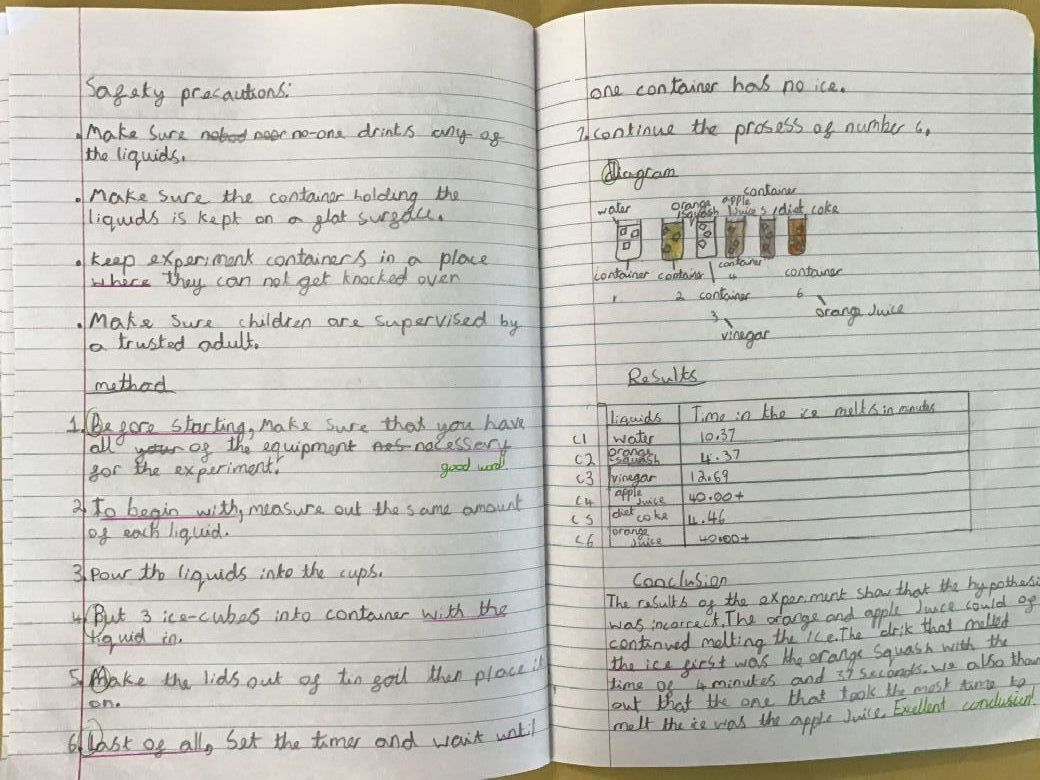 Safety precautions:
. Make sure no-one drinks any of
the liquids.
. Make sure the container holding the
liquids is kept on a flat surface.
. keep experiment containers in a place
where they can not get knocked over
. Make sure children are supervised by
a trusted adult.
method
1. Before starting, Make sure that you have
all your of the equipment nes necessary
for the experiment.
good word!
2. To begin with, measure out the same amount
of each liquid.
3. Pour the liquids into the cups.
4. But 3 ice-cubes into container with the
liquid in.
5. Make the lids out of tin foil then place it
on.
6. Last of all, Set the timer and wait until
one container has no ice.
7. continue the prosess of number 6.
diagram
container
water orange squash apple juice 5 diet coke
container container container container
1 2 container 4 6
3 orange Juice
vinegar
Results
liquids Time in the ice melts in minutes
C1 water 10.37
C2 orange squash 4.37
C3 vinegar 12.69
C4 apple juice 40.00+
C5 diet coke 4.46
C6 orange Juice 40.00+
Conclusion
The results of the experiment show that the hypothesi
was incorrect. The orange and apple Juice could of
contenued melting the ice. The drik that melted
the ice first was the orange squash with the
time of 4 minutes and 37 seconds. we also
out that the one that took the most time to
melt the ice was the apple Juice. Excellent conclusion!